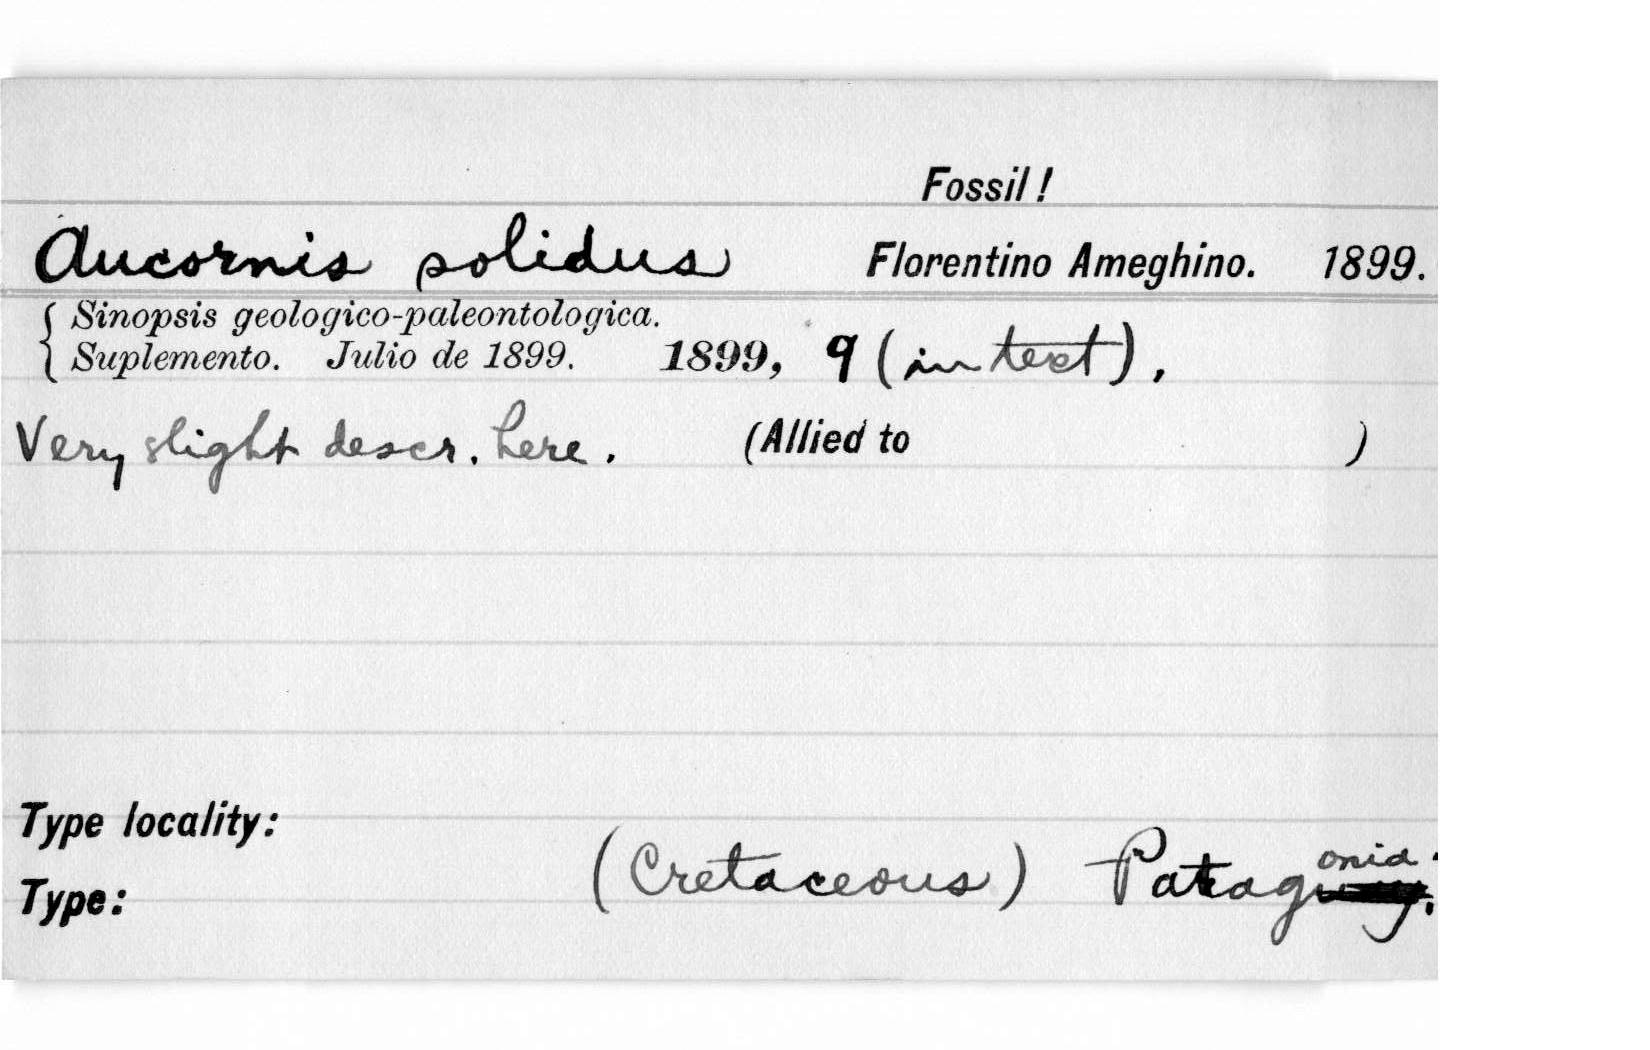 Fossil!
Aucornis solidus Florentino Ameghino. 1899.
Sinopsis geologico-paleontologica.
Suplemento. Julio de 1899. 1899, 9 (in text).
Very slight descr. here. (Allied to )
Type locality:
(Cretaceous) Patagonia.
Type: